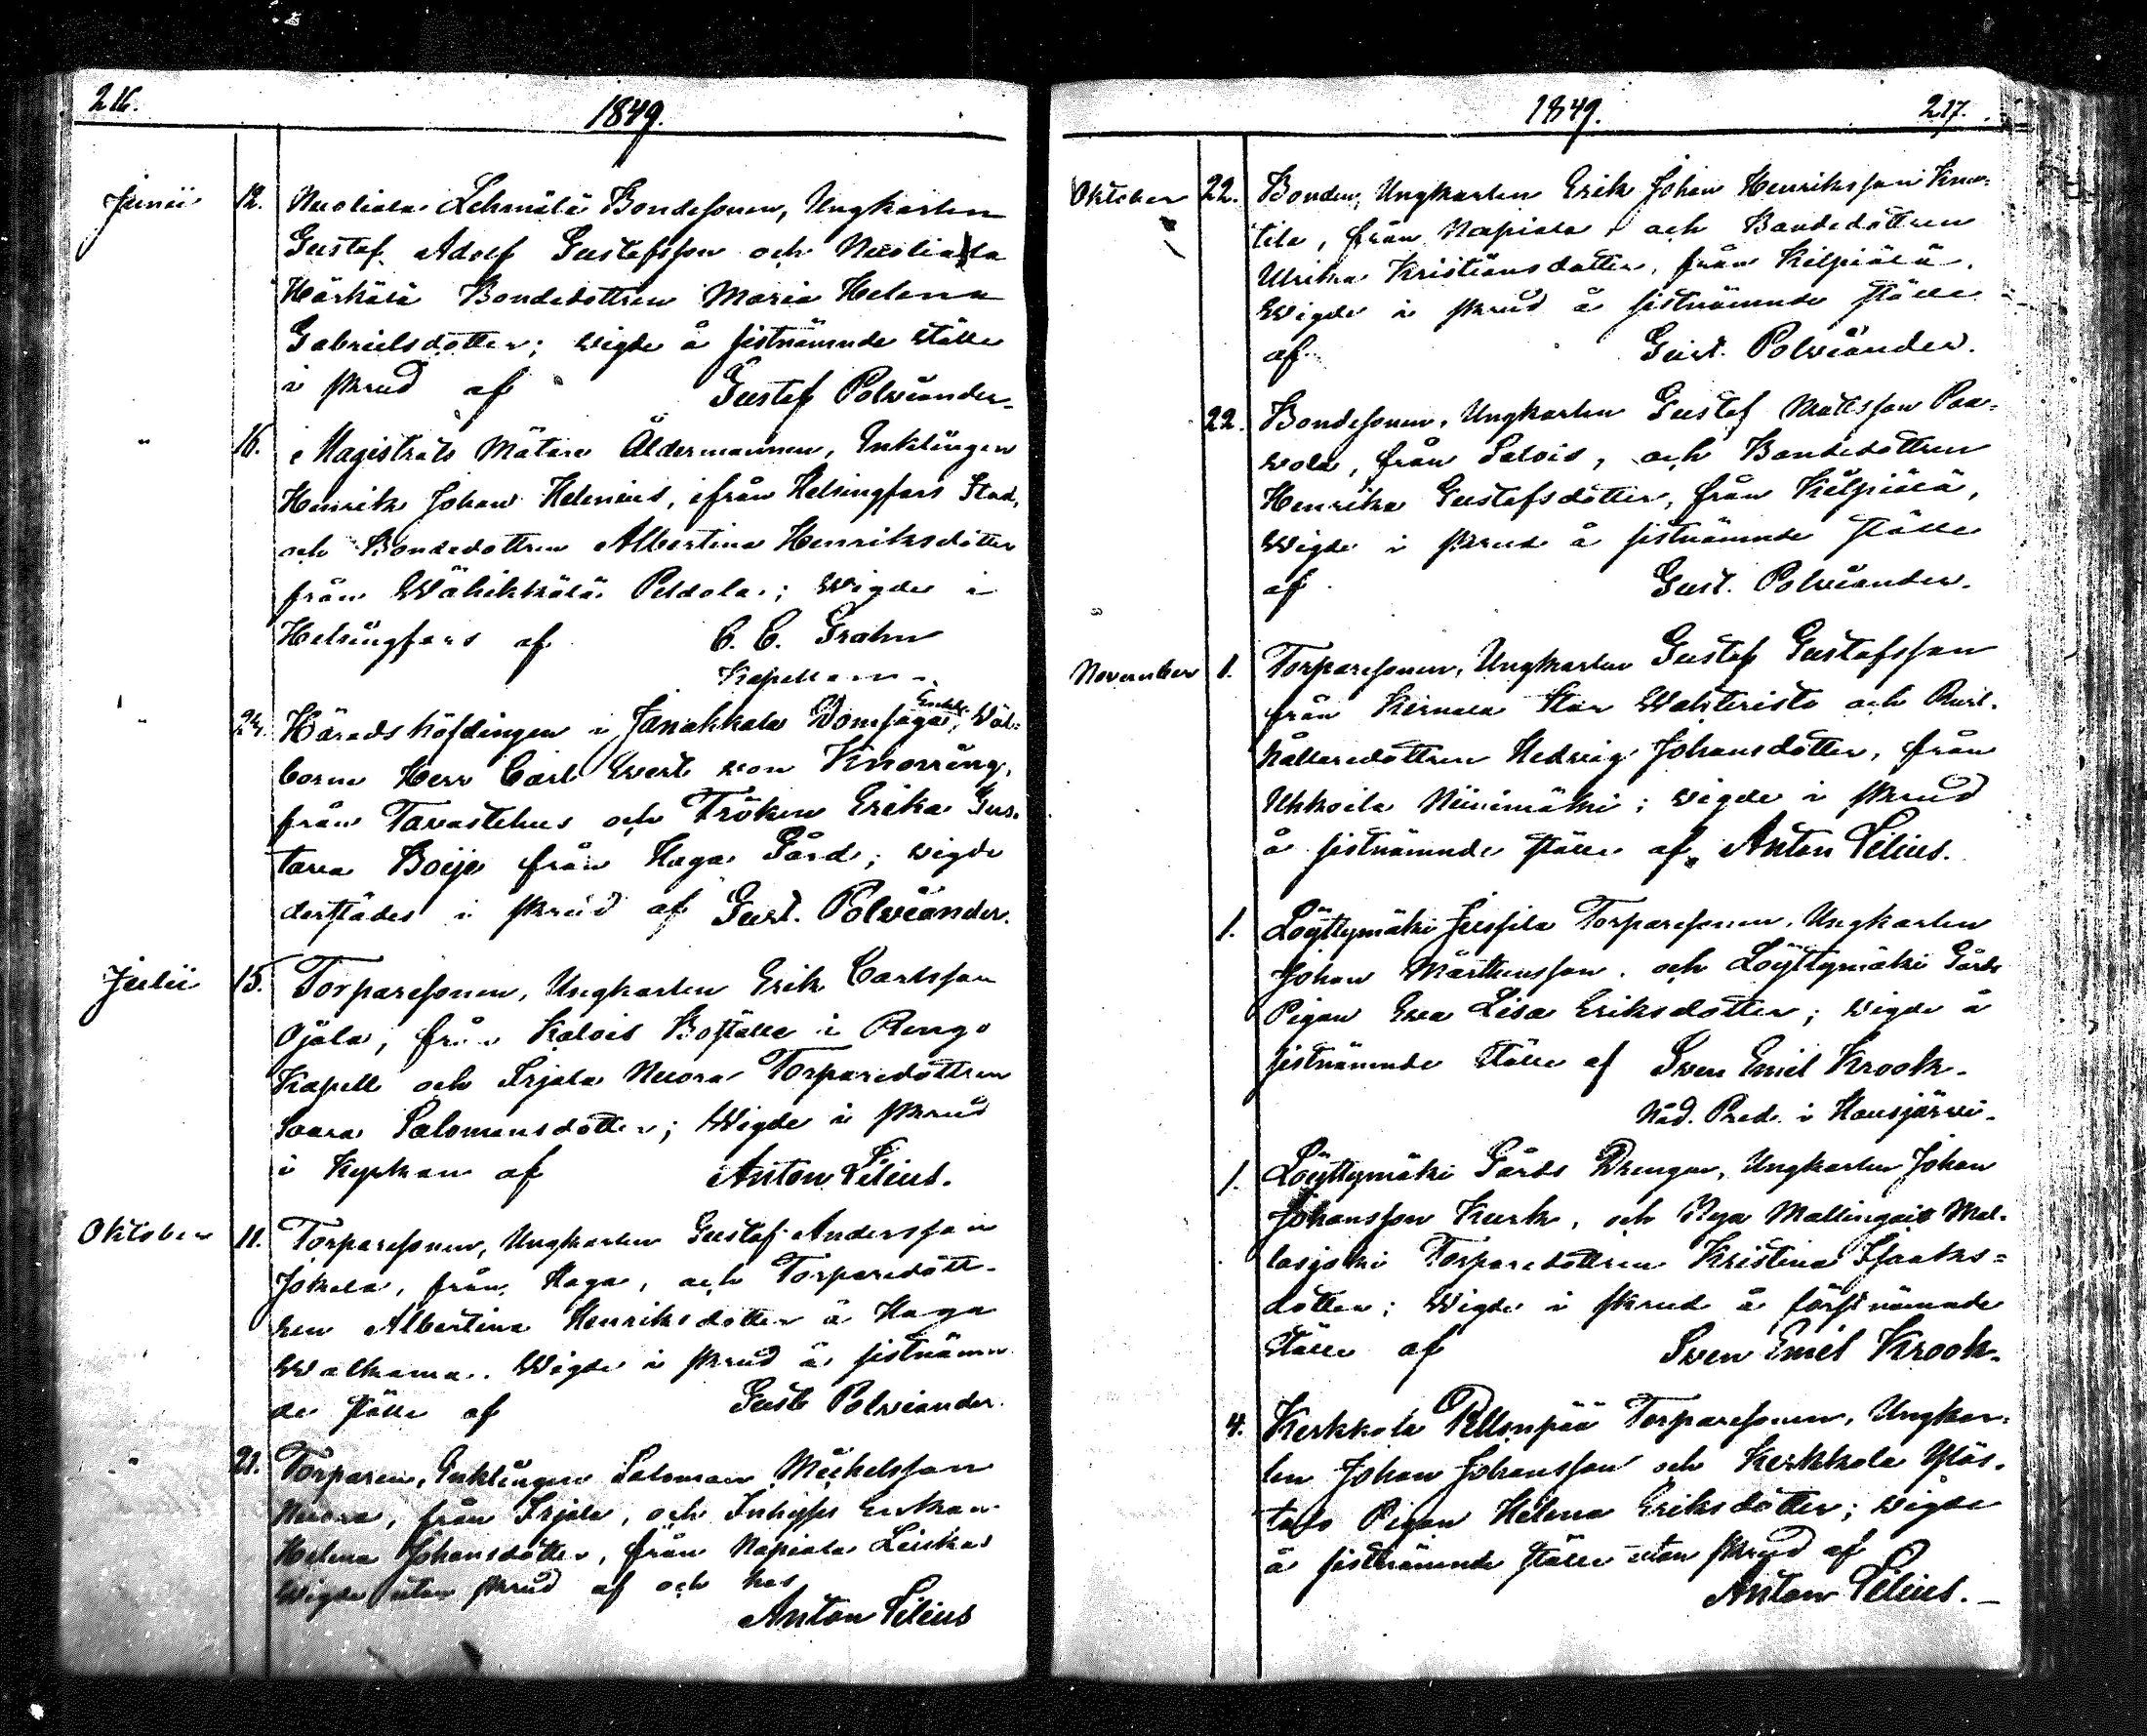 216.
1849.
Junii 12. Nuoliala Lehmälä Bondesonen, Ungkarlen
Gustaf Adolf Gustafsson och Nuoliala
Härkälä Bondedottren Maria Helena
Gabrielsdotter; wigde å sistnämnde ställe
i skrud af Gustaf Polviander.
" 16. Magistrats Mätare Åldermannen, Enklingen
Henrik Johan Helenius, ifrån Helsingfors Stad,
och Bondedottren Albertina Henriksdotter
från Wähikkälä Peldola; Wigde i
Helsingfors af C. C. Grahn
Kapellan
" 24. Häradshöfdingen i Janakkala Domsaga, Wäl-
borne Herr Carl Evert von Knorring,
från Tavastehus och Fröken Erika Gus-
tava Boije från Haga Gård; wigde
derstädes i skrud af Gust. Polviander.
Julii 15. Torparesonen, Ungkarlen Erik Carlsson
Ojala, från Kalois Boställe i Rengo
Kapell och Irjala Nuora Torparedottren
Saara Salomonsdotter; Wigde i skrud
i Kyrkan af Anton Lilius.
Oktober 11. Torparesonen, Ungkarlen Gustaf Andersson
Jokela, från Haga, och Torparedott-
ren Albertina Henriksdotter å Haga
Walkama. Wigde i skrud å sistnämn
de ställe af Gust. Polviander.
" 21. Torparen, Enklingen Salomon Michelsson
Nuora, från Irjala, och Inhyses Enkan
Helena Johansdotter, från Napiala Leiska
Wigde utan skrud af och hos
Anton Lilius
1849.
217.
Oktober 22. Bonden, Ungkarlen Erik Johan Henriksson Knuu-
tila, från Napiala, och Bondedottren
Ulrika Kristiansdotter, från Kilpiälä,
Wigde i skrud å sistnämnde ställe
af Gust. Polviander.
22. Bondesonen, Ungkarlen Gustaf Mattsson Paa-
vola, från Salois, och Bondedottren
Henrika Gustafsdotter, från Kilpiälä,
Wigde i skrud å sistnämnde ställe
af Gust. Polviander.
November 1. Torparesonen, Ungkarlen Gustaf Gustafsson
från Kernala Stor Wahteristo och Rust-
hållaredottren Hedvig Johansdotter, från
Uhkoila Niinimäki; wigde i skrud
å sistnämnde ställe af Anton Lilius.
1. Löyttymäki Jussila Torparesonen, Ungkarlen
Johan Mårtensson och Löyttymäki Gårds
Pigan Eva Lisa Eriksdotter; Wigde å
sistnämnde ställe af Sven Emil Krook.
Nåd. Pred. i Hausjärvi.
1. Löyttymäki Gårds Drengen, Ungkarlen Johan
Johansson Kurk, och Nya Mallingais Mal-
lasjoki Torparedottren Kristina Isaaks-
dotter; Wigde i skrud å förstnämnde
ställe af Sven Emil Krook.
4. Kerkkola Pellonpää Torparesonen, Ungkar-
len Johan Johansson och Kerkkola Ylös-
talo Pigan Helena Eriksdotter; wigde
å sistnämnde ställe utan skrud af
Anton Lilius.